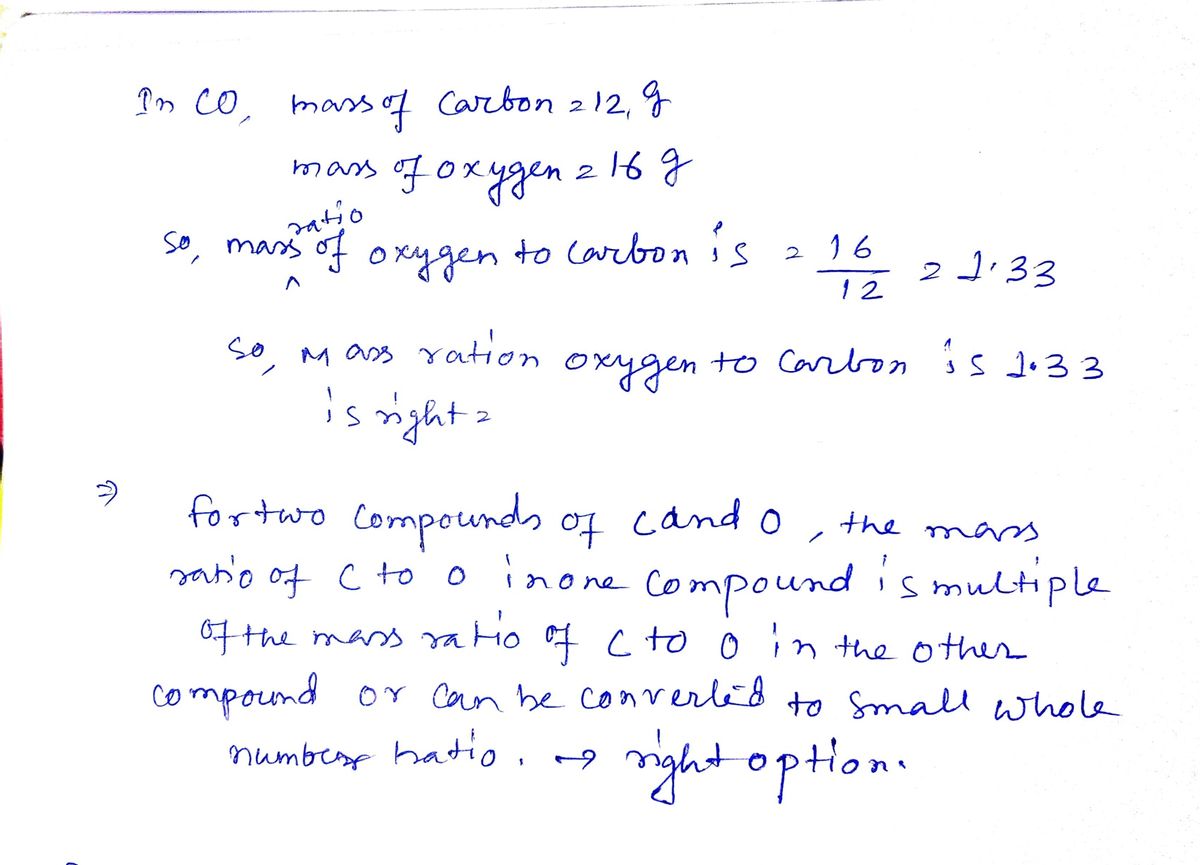 In CO, mass of Carbon = 12, g
mass of oxygen = 16 g
ratio
so, mass of oxygen to carbon is = 16/12 = 1.33
so, Mass ration oxygen to Carbon is 1.33
is right =
⇒ for two compounds of C and O, the mass
ratio of C to O in one compound is multiple
of the mass ratio of C to O in the other
compound or can be converted to small whole
number ratio. → right option.